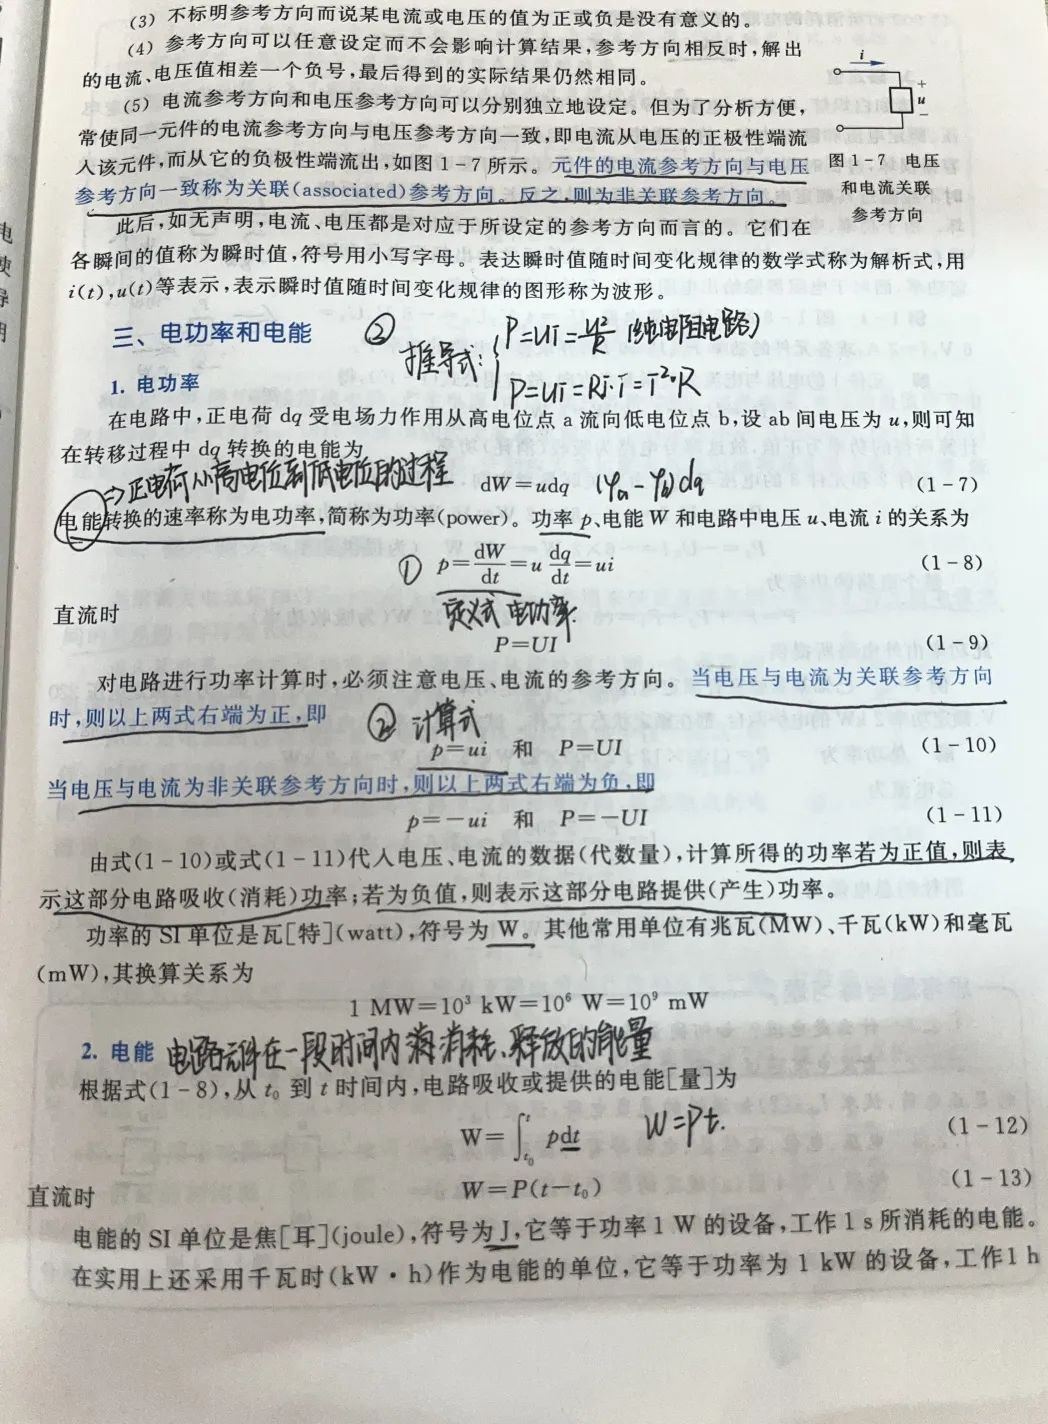 (3) 不标明参考方向而说某电流或电压的值为正或负是没有意义的。
(4) 参考方向可以任意设定而不会影响计算结果,参考方向相反时,解出
的电流、电压值相差一个负号,最后得到的实际结果仍然相同。
(5) 电流参考方向和电压参考方向可以分别独立地设定。但为了分析方便,
常使同一元件的电流参考方向与电压参考方向一致,即电流从电压的正极性端流
入该元件,而从它的负极性端流出,如图1-7所示。元件的电流参考方向与电压
参考方向一致称为关联(associated)参考方向。反之,则为非关联参考方向。
i
+
u
−
图1-7 电压
和电流关联
参考方向
此后,如无声明,电流、电压都是对应于所设定的参考方向而言的。它们在
各瞬间的值称为瞬时值,符号用小写字母。表达瞬时值随时间变化规律的数学式称为解析式,用
i(t),u(t)等表示,表示瞬时值随时间变化规律的图形称为波形。
三、电功率和电能
② 推导式: P=UI=U²/R (纯电阻电路)
P=UI=RI·I=I²·R
1. 电功率
在电路中,正电荷 dq 受电场力作用从高电位点 a 流向低电位点 b,设 ab 间电压为 u,则可知
在转移过程中 dq 转换的电能为
⇒正电荷从高电位到低电位的过程
dW=udq (φa-φb)dq (1-7)
电能转换的速率称为电功率,简称为功率(power)。功率 p、电能 W 和电路中电压 u、电流 i 的关系为
① p=dW/dt=u dq/dt=ui (1-8)
定义式 电功率.
直流时
P=UI (1-9)
对电路进行功率计算时,必须注意电压、电流的参考方向。当电压与电流为关联参考方向
时,则以上两式右端为正,即
② 计算式
p=ui 和 P=UI (1-10)
当电压与电流为非关联参考方向时,则以上两式右端为负,即
p=-ui 和 P=-UI (1-11)
由式(1-10)或式(1-11)代入电压、电流的数据(代数量),计算所得的功率若为正值,则表
示这部分电路吸收(消耗)功率;若为负值,则表示这部分电路提供(产生)功率。
功率的 SI 单位是瓦[特](watt),符号为 W。其他常用单位有兆瓦(MW)、千瓦(kW)和毫瓦
(mW),其换算关系为
1 MW=10³ kW=10⁶ W=10⁹ mW
2. 电能 电路元件在一段时间内消耗、释放的能量
根据式(1-8),从 t₀ 到 t 时间内,电路吸收或提供的电能[量]为
W=∫ₜ₀ᵗ pdt W=Pt. (1-12)
直流时 W=P(t-t₀) (1-13)
电能的 SI 单位是焦[耳](joule),符号为 J,它等于功率 1 W 的设备,工作 1 s 所消耗的电能。
在实用上还采用千瓦时(kW·h)作为电能的单位,它等于功率为 1 kW 的设备,工作 1 h